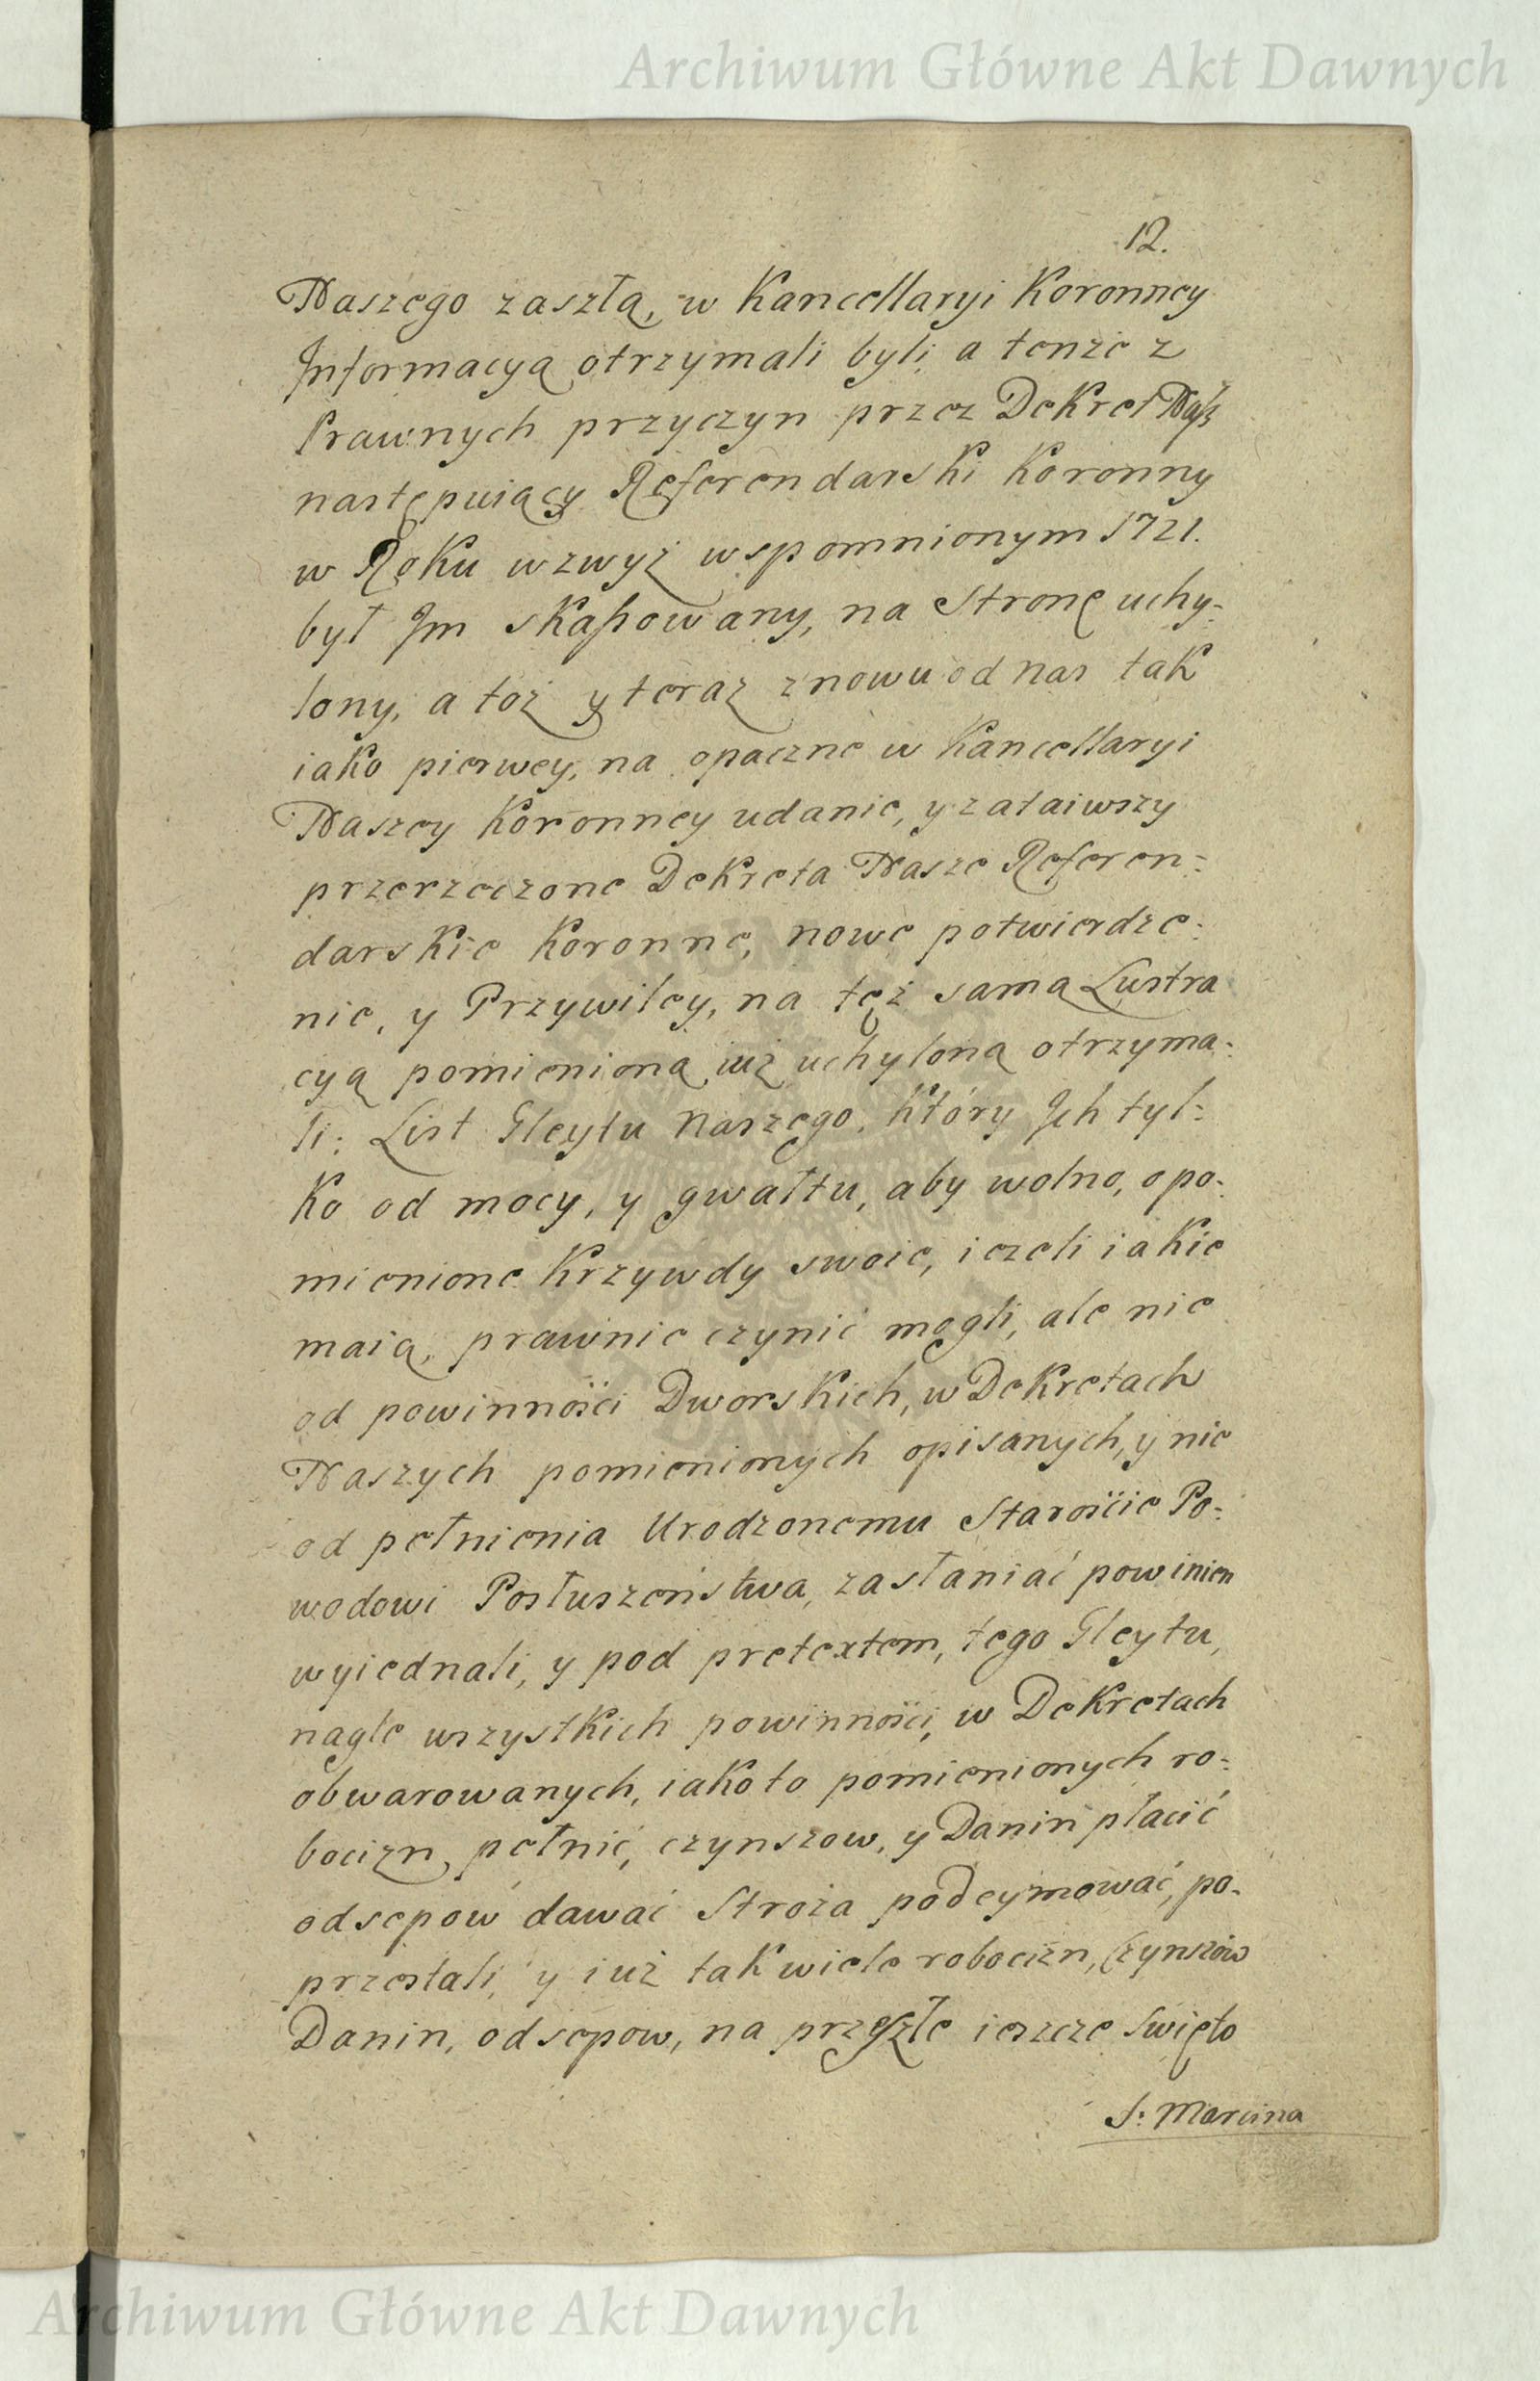 Archiwum Główne Akt Dawnych
12.
Naszego zaszłą, w Kancellaryi Koronney
Informacyą otrzymali byli, a tenże z
Prawnych przyczyn przez Dekret Nasz
następuiący Referendarski Koronny
w Roku wzwyż wspomnionym 1721.
był Im skassowany, na Stronę uchy-
lony, a toż y teraz znowu od nas tak
iako pierwey, na opaczne w Kancellaryi
Naszey Koronney udanie, y zataiwszy
przerzeczone Dekreta Nasze Referen-
darskie Koronne, nowe potwierdze-
nie, y Przywiley, na tęż samą Lustra
cyą pomienioną iuż uchyloną otrzyma-
li: List Gleytu Naszego, który Ich tyl-
ko od mocy, y gwałtu, aby wolno, opo-
mienione Krzywdy swoie, ieżeli iakie
maią, prawnie czynić mogli, ale nie
od powinności Dworskich, w Dekretach
Naszych pomienionych opisanych, y nie
od pełnienia Urodzonemu Starościе Po-
wodowi Posłuszeństwa, zasłaniać powinien
wyiednali, y pod pretextem, tego Gleytu,
nagle wszystkich powinności, w Dekretach
obwarowanych, iako to pomienionych ro-
bocizn pełnić, czynszow, y Danin płacić
odsepow dawać Stroża podeymować, po-
przestali, y iuż tak wiele robocizn, Czynszów
Danin, odsepow, na przeszłe ieszcze Swięto
S: Marcina
ARCHIWUM GŁÓWNE AKT DAWNYCH
Archiwum Główne Akt Dawnych